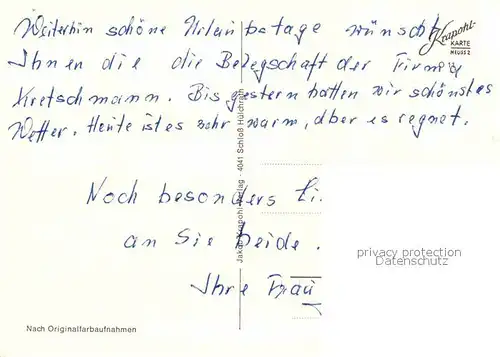 Weiterhin schöne Urlaubstage wünscht
Krapohl-
KARTE
Ihnen die die Belegschaft der Firma
Kretschmann. Bis gestern hatten wir schönstes
Wetter. Heute ist es sehr warm, aber es regnet.
Jakob Krapohl-Verlag - 4041 Schloß Hülchrath
Noch besonders
an Sie beide.
privacy protection
Datenschutz
Ihre Frau
Nach Originalfarbaufnahmen